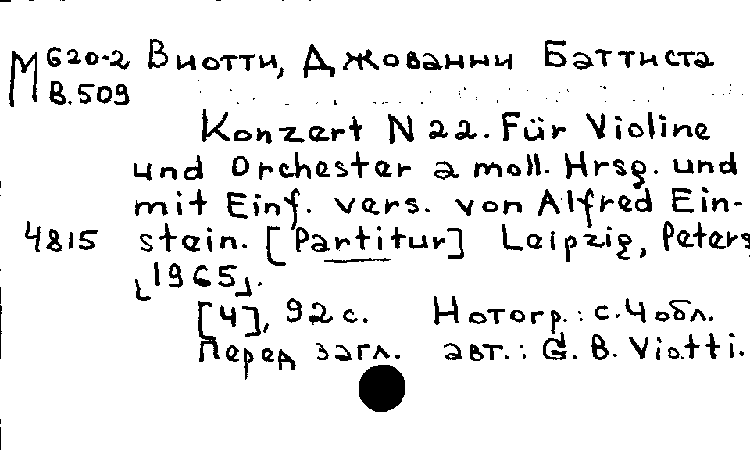 М 620-2 Виотти, Джованни Баттиста
В.509
Konzert N 22. Für Violine
und Orchester a moll. Hrsg. und
mit Einf. vers. von Alfred Ein-
4815 stein. [Partitur] Leipzig, Peters
[1965].
[4], 92 с. Нотогр.: с. 4 обл.
Перед загл. авт.: G. B. Viotti.